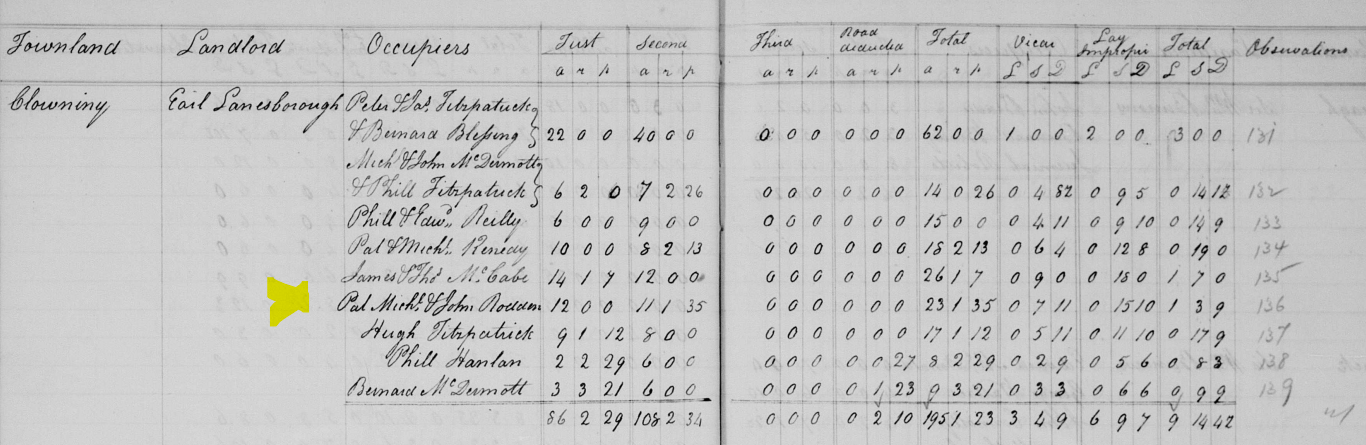 Townland Landlord Occupiers First Second Third Road deducted Total Vicar Lay Impropr Total Observations
a r p a r p a r p a r p a r p £ S D £ S D £ S D
Clowniny Earl Lanesborough Peter & Jas. Fitzpatrick
& Bernard Blessing 22 0 0 40 0 0 0 0 0 0 0 0 62 0 0 1 0 0 2 0 0 3 0 0 131
Mich & John McDermott
& Phill Fitzpatrick 6 2 0 7 2 26 0 0 0 0 0 0 14 0 26 0 4 8 0 9 5 0 14 132
Phill & Edwd. Reilly 6 0 0 9 0 0 0 0 0 0 0 0 15 0 0 0 4 11 0 9 10 0 14 9 133
Pat & Michl. Kenedy 10 0 0 8 2 13 0 0 0 0 0 0 18 2 13 0 6 4 0 12 8 0 19 0 134
James & Thos McCabe 14 1 7 12 0 0 0 0 0 0 0 0 26 1 7 0 9 0 0 18 0 1 7 0 135
Pat Michl. & John Rodden 12 0 0 11 1 35 0 0 0 0 0 0 23 1 35 0 7 11 0 15 10 1 3 9 136
Hugh Fitzpatrick 9 1 12 8 0 0 0 0 0 0 0 0 17 1 12 0 5 11 0 11 10 0 17 9 137
Phill Hanlan 2 2 29 6 0 0 0 0 0 0 0 27 8 2 29 0 2 9 0 5 6 0 8 3 138
Bernard McDermott 3 3 21 6 0 0 0 0 0 0 1 23 9 3 21 0 3 3 0 6 6 0 9 9 139
86 2 29 108 2 34 0 0 0 0 2 10 195 1 23 3 4 9 6 9 7 9 14 4